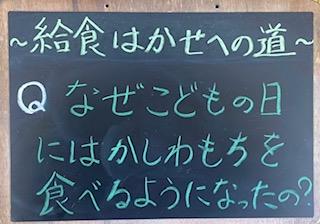 ~給食はかせへの道~
Q なぜこどもの日
にはかしわもちを
食べるようになったの?